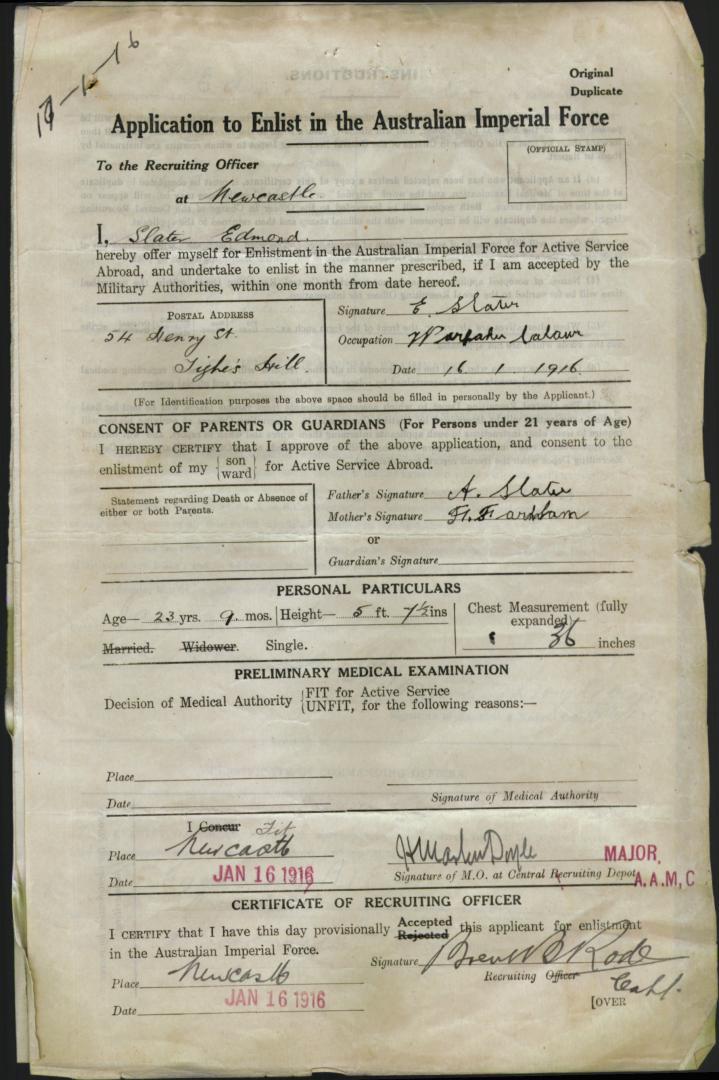 17-1-16
Original
Duplicate
Application to Enlist in the Australian Imperial Force
(OFFICIAL STAMP)
To the Recruiting Officer
at Newcastle.
I, Slater Edmond.
hereby offer myself for Enlistment in the Australian Imperial Force for Active Service
Abroad, and undertake to enlist in the manner prescribed, if I am accepted by the
Military Authorities, within one month from date hereof.
POSTAL ADDRESS
54 Henry St.
Tighe's Hill.
Signature E. Slater
Occupation
Date 16 1 1916
(For Identification purposes the above space should be filled in personally by the Applicant.)
CONSENT OF PARENTS OR GUARDIANS (For Persons under 21 years of Age)
I HEREBY CERTIFY that I approve of the above application, and consent to the
enlistment of my {son ward} for Active Service Abroad.
Statement regarding Death or Absence of
either or both Parents.
Father's Signature A. Slater
Mother's Signature
or
Guardian's Signature
PERSONAL PARTICULARS
Age— 23 yrs. 9 mos. Height— 5 ft. 7½ ins
Chest Measurement (fully
expanded)
36 inches
Married. Widower. Single.
PRELIMINARY MEDICAL EXAMINATION
Decision of Medical Authority {FIT for Active Service
{UNFIT, for the following reasons:—
Place
Date
Signature of Medical Authority
I Concur Fit
Place Newcastle
Date JAN 16 1916
Signature of M.O. at Central Recruiting Depot
MAJOR,
A.A.M.C
CERTIFICATE OF RECRUITING OFFICER
I CERTIFY that I have this day provisionally Accepted Rejected this applicant for enlistment
in the Australian Imperial Force.
Signature
Recruiting Officer Capt.
Place Newcastle
Date JAN 16 1916
[OVER